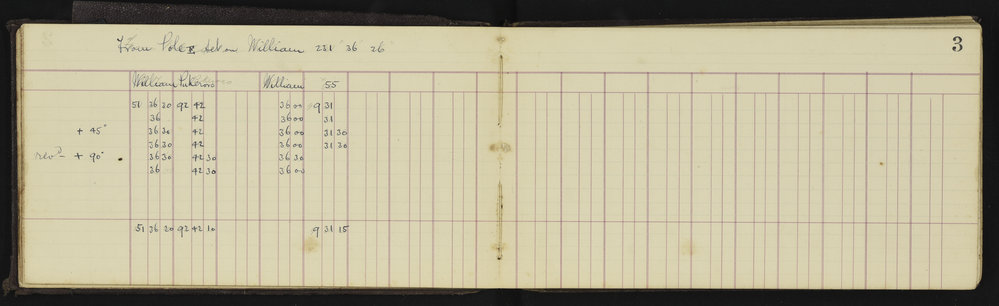 From Pole E set on William 231° 36' 26"
3
William Pukeroro William 55
51 36 20 92 42 36 00 9 31
36 42 36 00 31
+ 45° 36 30 42 36 00 31 30
36 30 42 36 00 31 30
rev^D – + 90° 36 30 42 30 36 30
36 42 30 36 00
51 36 20 92 42 10 9 31 15